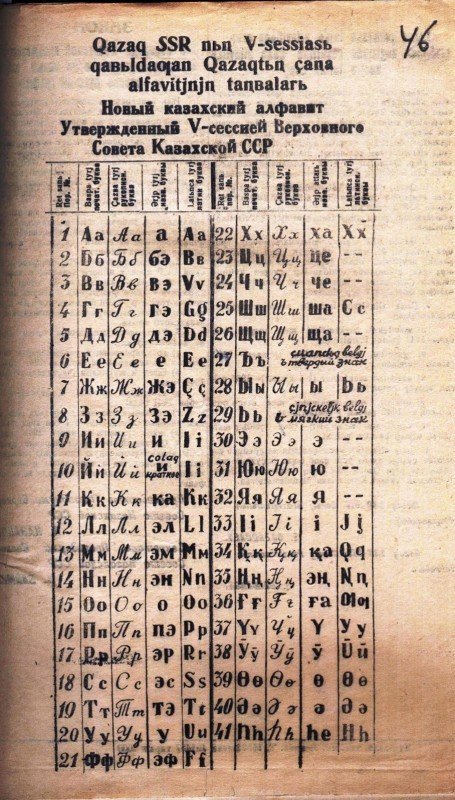 46
Qazaq SSR nьꞑ V-sessiasь
qavьldaƣan Qazaqtьꞑ çaꞑa
alfavitjnjꞑ taꞑbalarь
Новый казахский алфавит
Утвержденный V-сессией Верховного
Совета Казахской ССР
Ret sanь Пор. № Baspa tyrj печат. буква tyrj рукопис. буква Ərjp назв. буквы Latьnca tyrj латин. буква Ret sanь пор. № Baspa tyrj печат. буквы tyrj рукопис. буквы Ərjp назв. буквы Latьnca tyrj латинск. буквы
1 Аа Аа а Aa 22 Хх Хх ха Xx
2 Бб Бб бэ Bв 23 Цц Цц це --
3 Вв Вв вэ Vv 24 Чч Чч че --
4 Гг Гг гэ Gg 25 Шш Шш ша Cc
5 Дд Дд дэ Dd 26 Щщ Щщ ща --
6 Ее Ее е Ee 27 Ъъ belgj ъ твердый знак
7 Жж Жж жэ Çç 28 Ыы Ыы ы Ьь
8 Зз Зз зэ Zz 29 Ьь cjnjckeljk belgj ь мягкий знак
9 Ии Ии и Ii 30 Ээ Ээ э --
10 Йй Йй colaq и краткое Ii 31 Юю Юю ю --
11 Кк Кк ка Kk 32 Яя Яя я --
12 Лл Лл эл Ll 33 Іі Іі і Jj
13 Мм Мм эм Mm 34 Ққ Ққ қа Qq
14 Нн Нн эн Nn 35 Ңң Ңң эң Ꞑꞑ
15 Оо Оо о Oo 36 Ғғ Ғғ ға Ƣƣ
16 Пп Пп пэ Pp 37 Үү Үү Ү Yy
17 Рр Рр эр Rr 38 Ӯӯ Ӯӯ ӯ Ūū
18 Сс Сс эс Ss 39 Өө Өө ө Өө
19 Тт Тт тэ Tt 40 Әə Әə ə Әə
20 Уу Уу у Uu 41 Һһ Һһ һе Hh
21 Фф Фф эф Ff